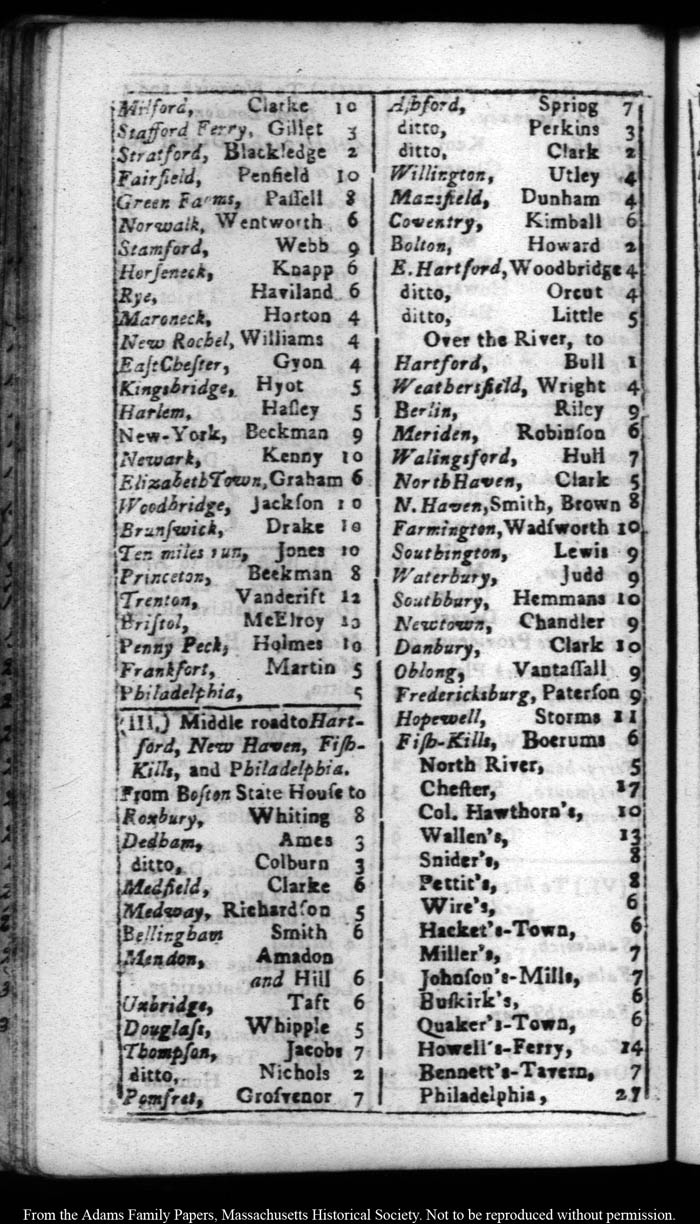 Milford, Clarke 10
Stafford Ferry, Gillet 3
Stratford, Blackledge 2
Fairfield, Penfield 10
Green Farms, Paſſell 8
Norwalk, Wentworth 6
Stamford, Webb 9
Horſeneck, Knapp 6
Rye, Haviland 6
Maroneck, Horton 4
New Rochel, Williams 4
EaſtCheſter, Gyon 4
Kingsbridge, Hyot 5
Harlem, Haſley 5
New-York, Beekman 9
Newark, Kenny 10
ElizabethTown, Graham 6
Woodbridge, Jackſon 10
Brunſwick, Drake 10
Ten miles run, Jones 10
Princeton, Beekman 8
Trenton, Vanderift 12
Briſtol, McElroy 10
Penny Peck, Holmes 10
Frankfort, Martin 5
Philadelphia, 5
(III.) Middle road to Hart-
ford, New Haven, Fiſh-
Kills, and Philadelphia.
From Boſton State Houſe to
Roxbury, Whiting 8
Dedham, Ames 3
ditto, Colburn 3
Medfield, Clarke 6
Medway, Richardſon 5
Bellingham Smith 6
Mendon, Amadon
and Hill 6
Uxbridge, Taft 6
Douglaſs, Whipple 5
Thompſon, Jacobs 7
ditto, Nichols 2
Pomfret, Groſvenor 7
Aſhford, Spring 7
ditto, Perkins 3
ditto, Clark 2
Willington, Utley 4
Mansfield, Dunham 4
Coventry, Kimball 6
Bolton, Howard 2
E. Hartford, Woodbridge 4
ditto, Orcut 4
ditto, Little 5
Over the River, to
Hartford, Bull 1
Weathersfield, Wright 4
Berlin, Riley 9
Meriden, Robinſon 6
Walingsford, Hull 7
NorthHaven, Clark 5
N. Haven, Smith, Brown 8
Farmington, Wadſworth 10
Southington, Lewis 9
Waterbury, Judd 9
Southbury, Hemmans 10
Newtown, Chandler 9
Danbury, Clark 10
Oblong, Vantaſſall 9
Fredericksburg, Paterſon 9
Hopewell, Storms 11
Fiſh-Kills, Boerums 6
North River, 5
Cheſter, 17
Col. Hawthorn's, 10
Wallen's, 13
Snider's, 8
Pettit's, 8
Wire's, 6
Hacket's-Town, 6
Miller's, 7
Johnſon's-Mills, 7
Buſkirk's, 6
Quaker's-Town, 6
Howell's-Ferry, 14
Bennett's-Tavern, 7
Philadelphia, 27
From the Adams Family Papers, Massachusetts Historical Society. Not to be reproduced without permission.